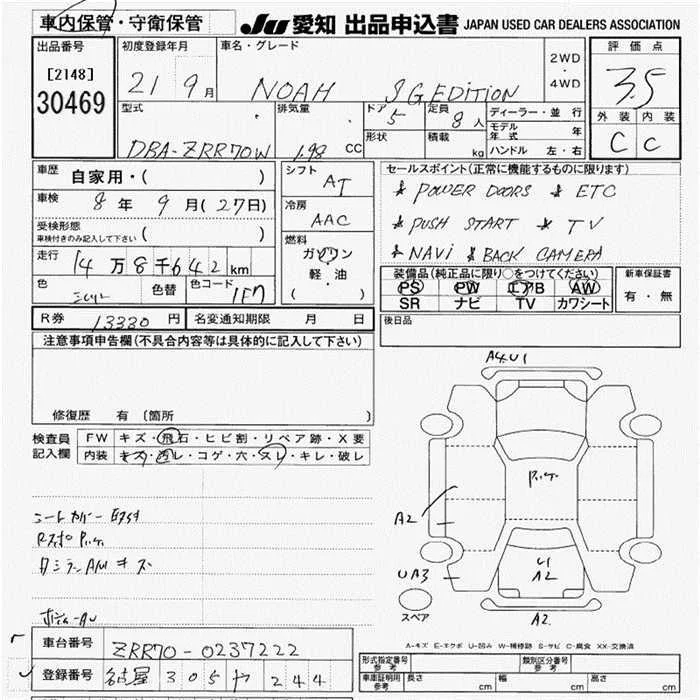 車内保管・守衛保管
JU 愛知 出品申込書 JAPAN USED CAR DEALERS ASSOCIATION
出品番号 初度登録年月 車名・グレード 2WD・4WD 評価点
[2148] 30469 21 9月 NOAH SG EDITION 3.5
型式 排気量 ドア 5 定員 8人 ディーラー・並行 外装 内装
形状 積載 kg モデル年式 年
DBA-ZRR70W 1.98 CC ハンドル 左・右 C C
車歴 自家用・( ) シフト AT セールスポイント(正常に機能するものに限ります)
車検 8年 9月(27日) 冷房 AAC * POWER DOORS * ETC
受検形態 車検付きのみ記入して下さい ( ) * PUSH START * TV
走行 14万8千642km 燃料 ガソリン 軽・油 ( ) * NAVI * BACK CAMERA
色 シルバー 色替 色コード 1F7
装備品(純正品に限り○をつけてください) 新車保証書
PS PW エアB AW 有・無
SR ナビ TV カワシート
R券 13330円 名変通知期限 月 日 後日品
注意事項申告欄(不具合内容等は具体的に記入して下さい)
修復歴 有 〔箇所 〕
検査員記入欄 FW キズ・飛石・ヒビ割・リペア跡・X要
内装 キズ・汚レ・コゲ・穴・スレ・キレ・破レ
A4.U1
A2
UA3
U1
A2
A2
スペア
シートカバー
A-キズ E-エクボ U-凹み W-補修跡 S-サビ C-腐食 XX-交換済
車台番号 ZRR70-0237222
登録番号 名古屋 305 ヤ 244
形式指定番号 参考 類別区分番号 参考
車庫証明用 参考 長さ cm 幅 cm 高さ cm